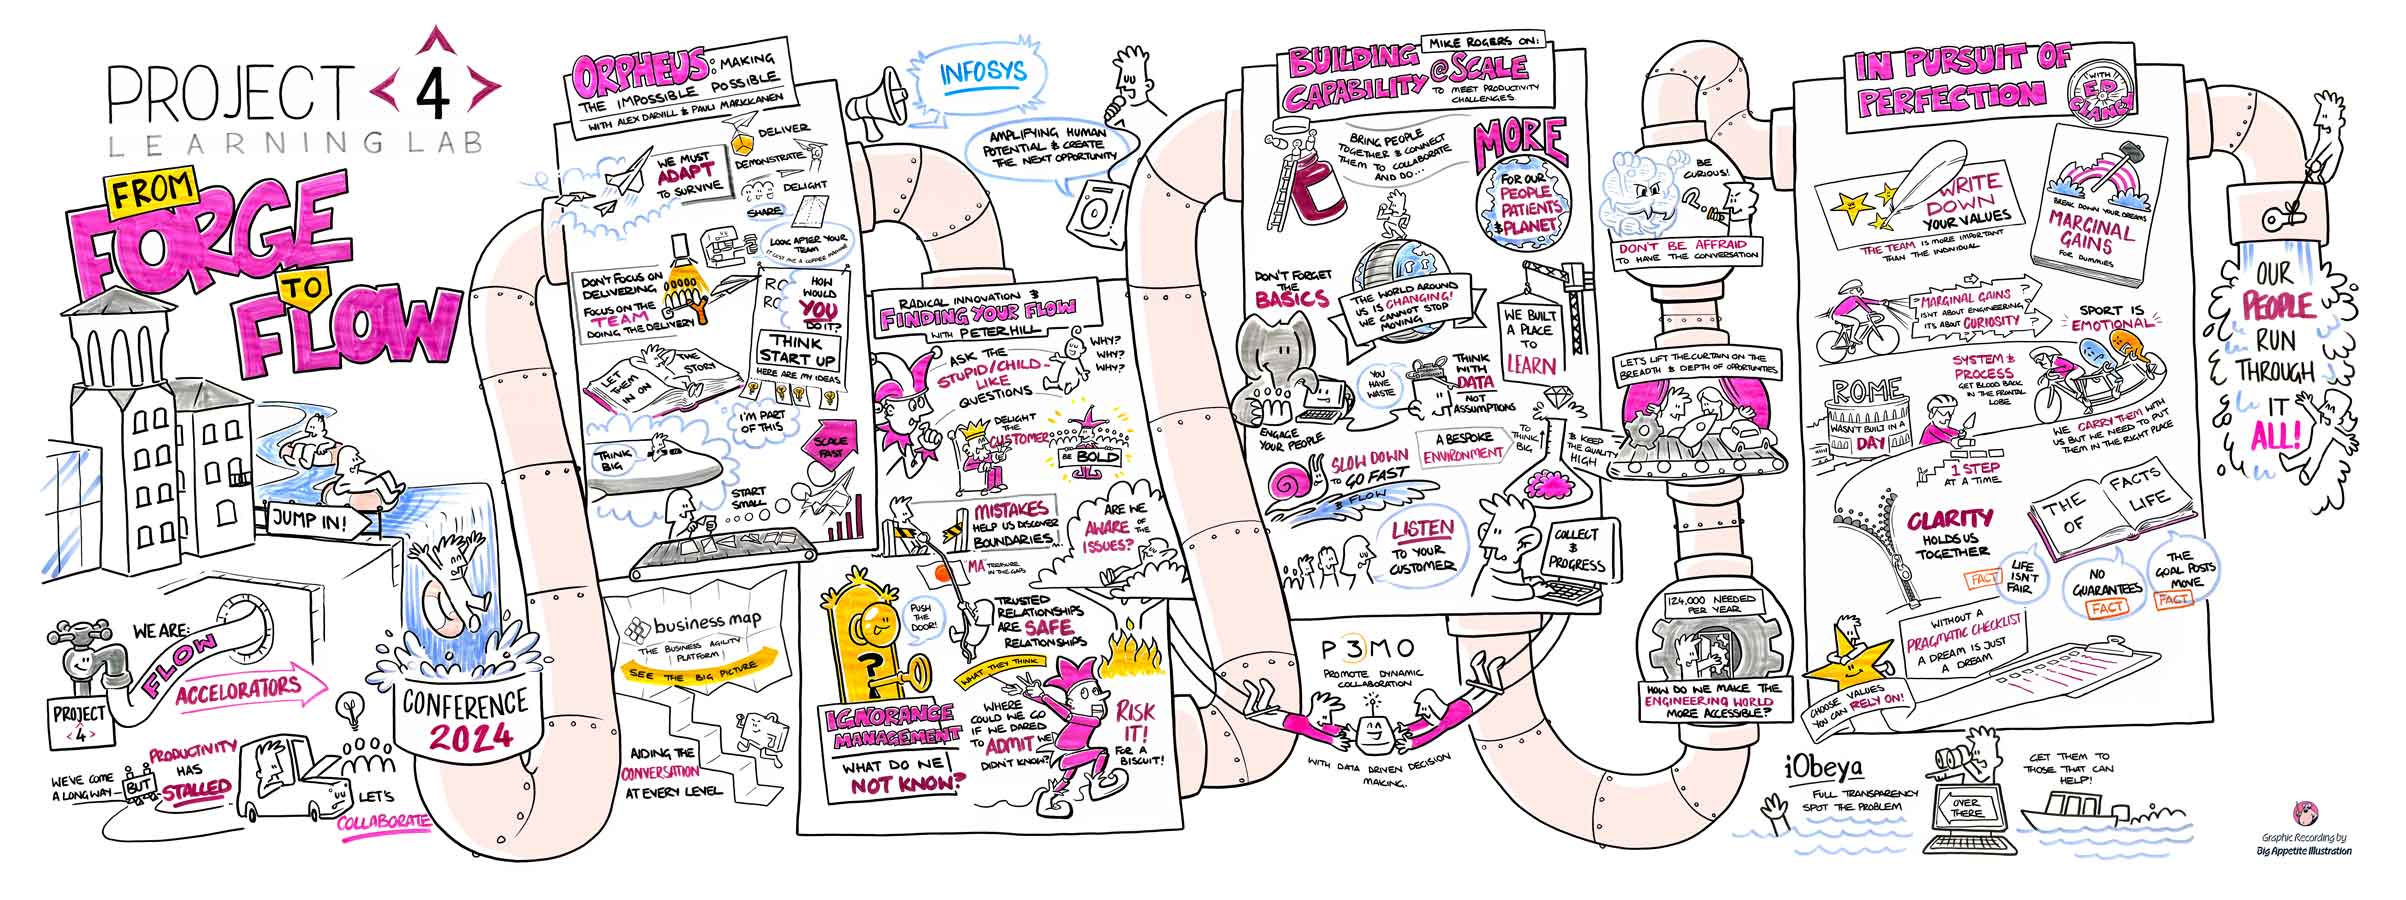 PROJECT <4>
LEARNING LAB
FROM
FORGE
TO
FLOW
JUMP IN!
WE ARE:
FLOW
ACCELORATORS
PROJECT
<4>
CONFERENCE
2024
WE'VE COME
A LONG WAY -
BUT
PRODUCTIVITY
HAS
STALLED
LET'S
COLLABORATE
ORPHEUS: MAKING
THE IMPOSSIBLE POSSIBLE
WITH ALEX DARVILL & PAULI MARKKANEN
WE MUST
ADAPT
TO SURVIVE
DELIVER
DEMONSTRATE
DELIGHT
SHARE
LOOK AFTER YOUR
TEAM
DON'T FOCUS ON
DELIVERING
FOCUS ON THE
TEAM
DOING THE DELIVERY
HOW
WOULD
YOU
DO IT?
THINK
START UP
HERE ARE MY IDEAS
LET
THEM
IN ON
THE
STORY
I'M PART
OF THIS
THINK
BIG
SCALE
FAST
START
SMALL
business map
THE BUSINESS AGILITY
PLATFORM
SEE THE BIG PICTURE
AIDING THE
CONVERSATION
AT EVERY LEVEL
INFOSYS
AMPLIFYING HUMAN
POTENTIAL & CREATE
THE NEXT OPPORTUNITY
RADICAL INNOVATION &
FINDING YOUR FLOW
WITH PETER HILL
ASK THE
STUPID/CHILD-
LIKE
QUESTIONS
WHY?
WHY?
WHY?
DELIGHT
THE
CUSTOMER
BE BOLD
MISTAKES
HELP US DISCOVER
BOUNDARIES
ARE WE
AWARE OF THE
ISSUES?
"MA" TREASURE
IN THE GAPS
PUSH
THE
DOOR!
TRUSTED
RELATIONSHIPS
ARE SAFE
RELATIONSHIPS
?
IGNORANCE
MANAGEMENT
WHAT DO WE
NOT KNOW?
WHAT THEY THINK
WHERE
COULD WE GO
IF WE DARED
TO ADMIT WE
DIDN'T KNOW?
RISK
IT!
FOR A
BISCUIT!
MIKE ROGERS ON:
BUILDING
CAPABILITY @ SCALE
TO MEET PRODUCTIVITY
CHALLENGES.
BRING PEOPLE
TOGETHER & CONNECT
THEM TO COLLABORATE
AND DO...
MORE
FOR OUR
PEOPLE
PATIENTS
& PLANET
DON'T FORGET
THE
BASICS
THE WORLD AROUND
US IS CHANGING!
WE CANNOT STOP
MOVING
WE BUILT
A PLACE
TO
LEARN
YOU
HAVE
WASTE
THINK
WITH
DATA
NOT
ASSUMPTIONS
ENGAGE
YOUR PEOPLE
A BESPOKE
ENVIRONMENT
TO
THINK
BIG
& KEEP
THE QUALITY
HIGH
SLOW DOWN
TO GO FAST
& FLOW
LISTEN
TO YOUR
CUSTOMER
COLLECT
&
PROGRESS
P3MO
PROMOTE DYNAMIC
COLLABORATION
WITH DATA DRIVEN DECISION
MAKING.
BE
CURIOUS!
DON'T BE AFFRAID
TO HAVE THE CONVERSATION
LET'S LIFT THE CURTAIN ON THE
BREADTH & DEPTH OF OPPORTUNITIES
124,000 NEEDED
PER YEAR
HOW DO WE MAKE THE
ENGINEERING WORLD
MORE ACCESSIBLE?
IN PURSUIT OF
PERFECTION
WITH
ED
CLANCY
WRITE
DOWN
YOUR VALUES
THE TEAM IS MORE IMPORTANT
THAN THE INDIVIDUAL
BREAK DOWN YOUR DREAMS
MARGINAL
GAINS
FOR DUMMIES
MARGINAL GAINS
ISN'T ABOUT ENGINEERING,
IT'S ABOUT CURIOSITY
SPORT IS
EMOTIONAL
SYSTEM &
PROCESS
GET BLOOD BACK
IN THE FRONTAL
LOBE
ROME
WASN'T BUILT IN A
DAY
1 STEP
AT A TIME
WE CARRY THEM WITH
US BUT WE NEED TO PUT
THEM IN THE RIGHT PLACE
CLARITY
HOLDS US
TOGETHER
THE
OF
FACTS
LIFE
FACT
LIFE
ISN'T
FAIR
NO
GUARANTEES
FACT
THE
GOAL POSTS
MOVE
FACT
WITHOUT A
PRAGMATIC CHECKLIST
A DREAM IS JUST
A DREAM
CHOOSE VALUES
YOU CAN RELY ON!
iObeya
FULL TRANSPARENCY
SPOT THE PROBLEM
OVER
THERE
GET THEM TO
THOSE THAT CAN
HELP!
OUR
PEOPLE
RUN
THROUGH
IT
ALL!
Graphic Recording by
Big Appetite Illustration